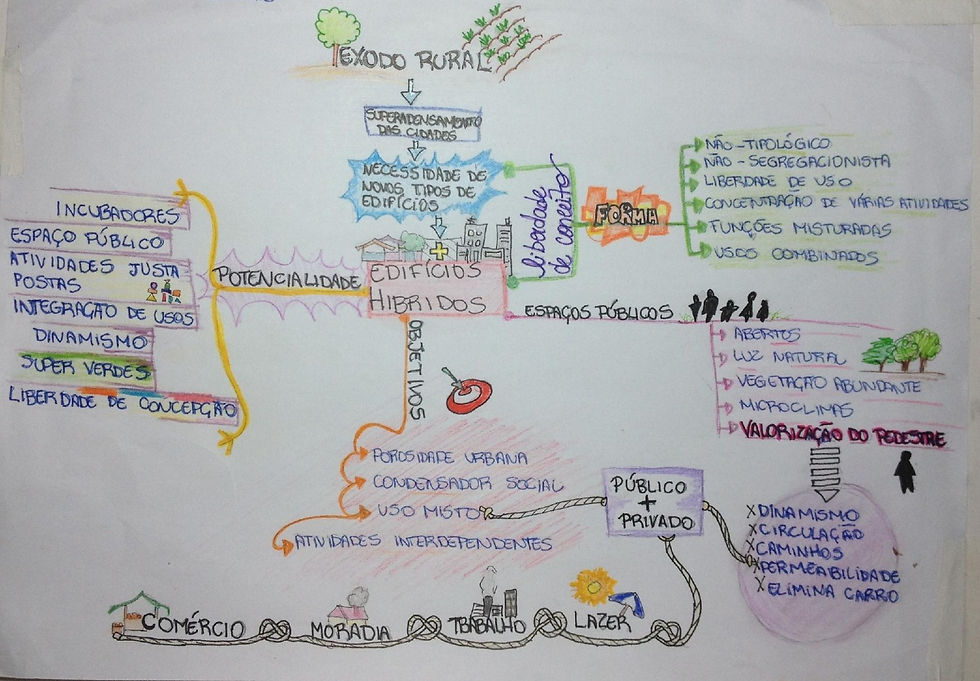 EXODO RURAL
SUPERADENSAMENTO
DAS CIDADES
NECESSIDADE DE
NOVOS TIPOS DE
EDIFÍCIOS
+
EDIFÍCIOS
HIBRIDOS
liberdade
de conceitos
FORMA
NÃO-TIPOLÓGICO
NÃO-SEGREGACIONISTA
LIBERDADE DE USO
CONCENTRAÇÃO DE VÁRIAS ATIVIDADES
FUNÇÕES MISTURADAS
USOS COMBINADOS
POTENCIALIDADE
INCUBADORES
ESPAÇO PÚBLICO
ATIVIDADES JUSTA
POSTAS
INTEGRAÇÃO DE USOS
DINAMISMO
SUPER VERDES
LIBERDADE DE CONCEPÇÃO
ESPAÇOS PÚBLICOS
ABERTOS
LUZ NATURAL
VEGETAÇÃO ABUNDANTE
MICROCLIMAS
VALORIZAÇÃO DO PEDESTRE
X DINAMISMO
X CIRCULAÇÃO
X CAMINHOS
X PERMEABILIDADE
X ELIMINA CARRO
OBJECTIVOS
POROSIDADE URBANA
CONDENSADOR SOCIAL
USO MISTO
ATIVIDADES INTERDEPENDENTES
PÚBLICO
+
PRIVADO
COMÉRCIO
MORADIA
TBABALHO
LAZER